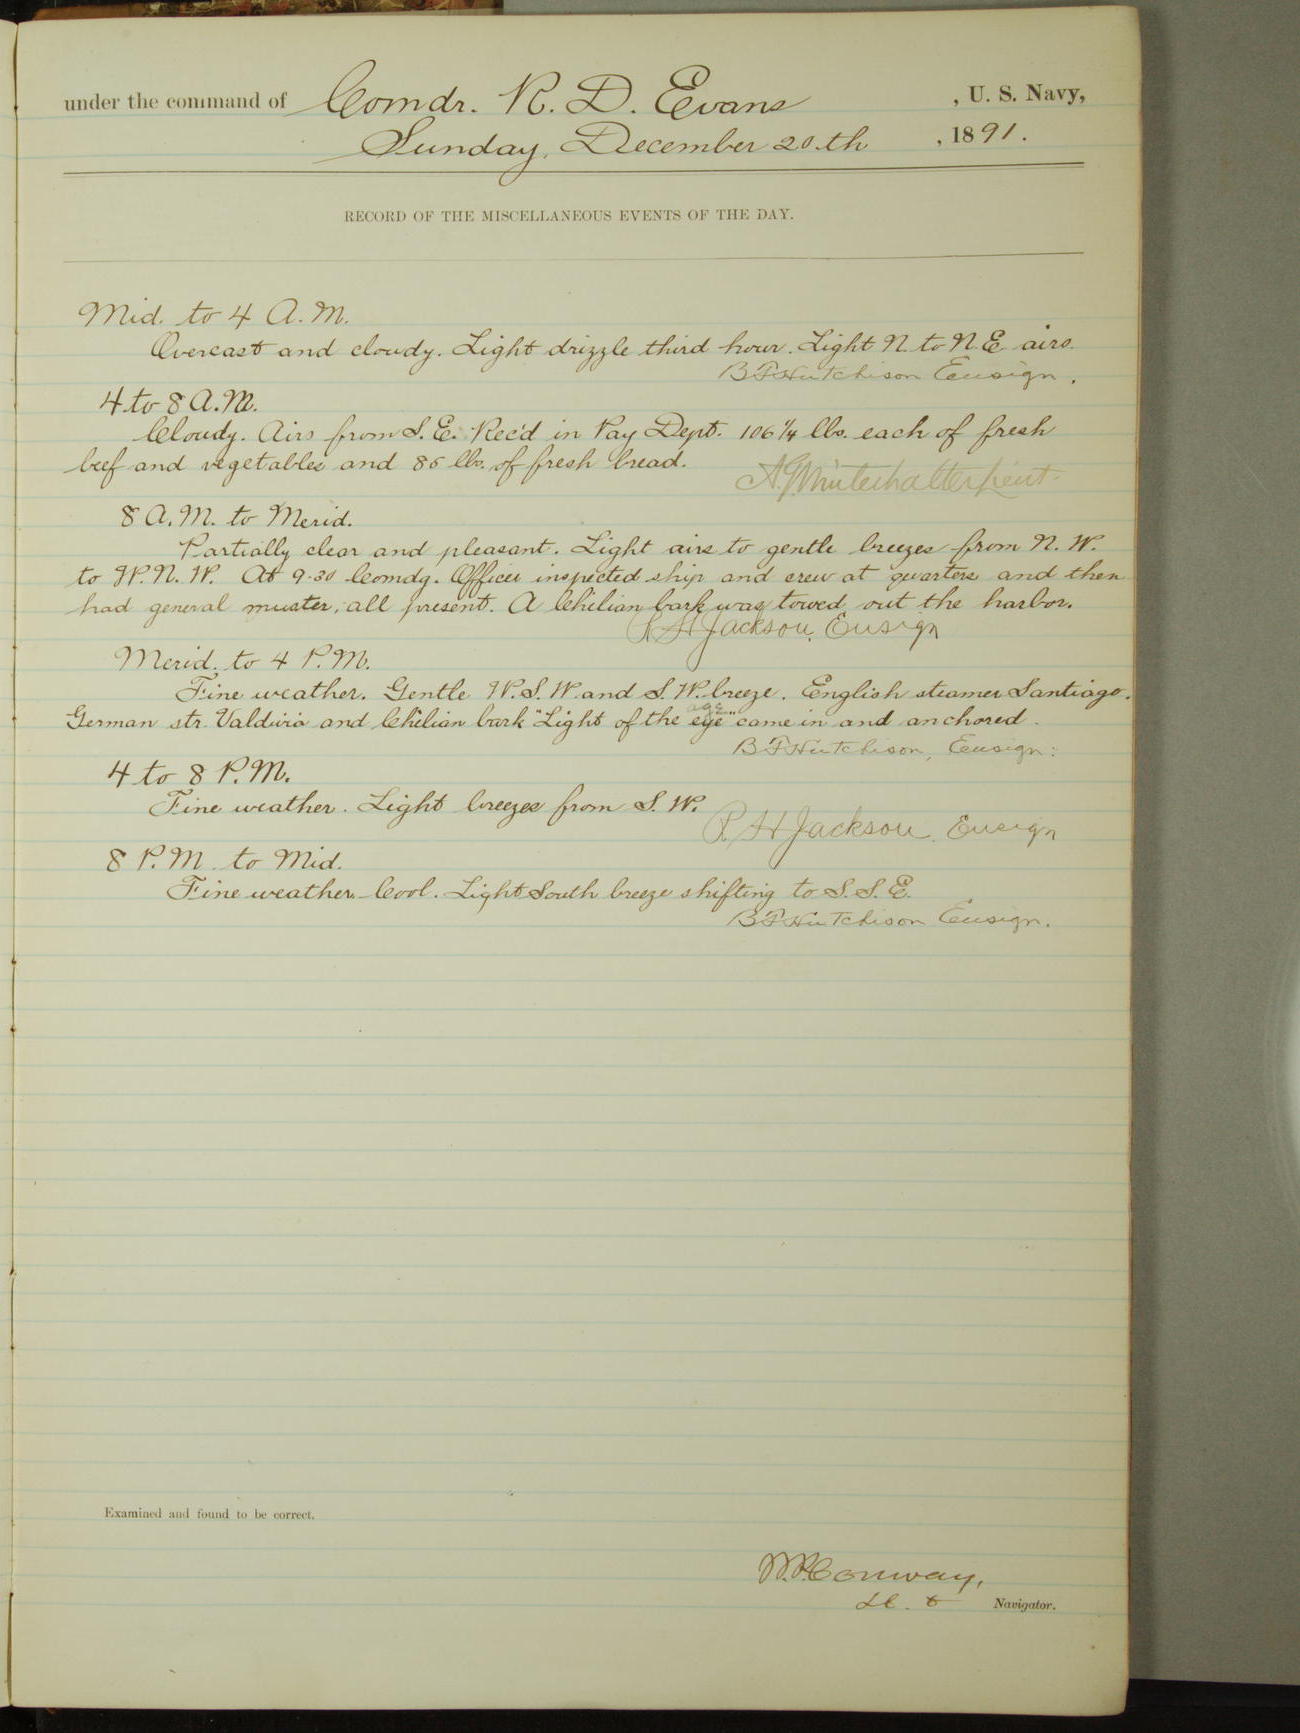 under the command of Comdr. R. D. Evans , U. S. Navy,
Sunday, December 20th , 1891.
RECORD OF THE MISCELLANEOUS EVENTS OF THE DAY.
Mid. to 4 A.M.
Overcast and cloudy. Light drizzle third hour. Light N. to N.E. airs.
B F Hutchison Ensign.
4 to 8 A.M.
Cloudy. Airs from S.E. Rec'd in Pay Dept. 106 1/4 lbs. each of fresh
beef and vegetables and 85 lbs. of fresh bread.
A G Winterhalter Lieut.
8 A.M. to Merid.
Partially clear and pleasant. Light airs to gentle breezes from N.W.
to W.N.W. At 9.30 Comdg. Officer inspected ship and crew at quarters and then
had general muster, all present. A Chilian bark was towed out the harbor.
R H Jackson, Ensign
Merid. to 4 P.M.
Fine weather. Gentle W.S.W. and S.W. breeze. English steamer Santiago.
age
German str. Valdivia and Chilian bark "Light of the eye" came in and anchored.
B F Hutchison, Ensign:
4 to 8 P.M.
Fine weather. Light breezes from S.W.
R H Jackson, Ensign
8 P.M. to Mid.
Fine weather. Cool. Light South breeze shifting to S.S.E.
B F Hutchison Ensign.
Examined and found to be correct.
W.P. Conway,
Lt. & Navigator.